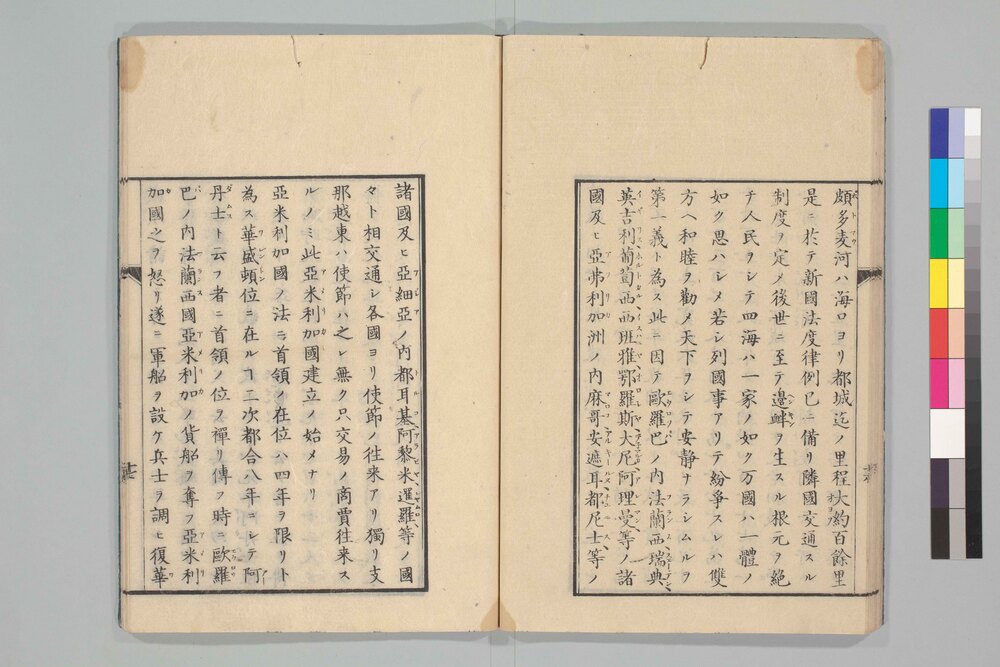 頗多麦河ハ海口ヨリ都城迄ノ里程大約百餘里
是ニ於テ新國法度律例已ニ備リ隣國交通スル
制度ヲ定メ後世ニ至テ邊衅ヲ生スル根元ヲ絶
チ人民ヲシテ四海ハ一家ノ如ク万國ハ一體ノ
如ク思ハシメ若シ列國事アリテ紛爭スレハ雙
方ヘ和睦ヲ勸メ天下ヲシテ安静ナラシムルヲ
第一義ト為ス此ニ因テ歐羅巴ノ内法蘭西瑞典
英吉利葡萄西西班雅鄂羅斯大尼阿理曼等ノ諸
國及ヒ亞弗利加洲ノ内麻哥安遮耳都尼士等ノ
諸國及ヒ亞細亞ノ内都耳基阿黎米暹羅等ノ國
々ト相交通シ各國ヨリ使節ノ往来アリ獨リ支
那越東ハ使節ハ之レ無ク只交易ノ商賈往来ス
ルノミ此亞米利加國建立ノ始メナリ
亞米利加國ノ法ニ首領ノ在位ハ四年ヲ限リト
為ス華盛頓位ニ在ルヿ二次都合八年ニシテ阿
丹士ト云フ者ニ首領ノ位ヲ禪リ傳フ時ニ歐羅
巴ノ内法蘭西國亞米利加ノ貨船ヲ奪フ亞米利
加國之ヲ怒リ遂ニ軍船ヲ設ケ兵士ヲ調ヒ復華